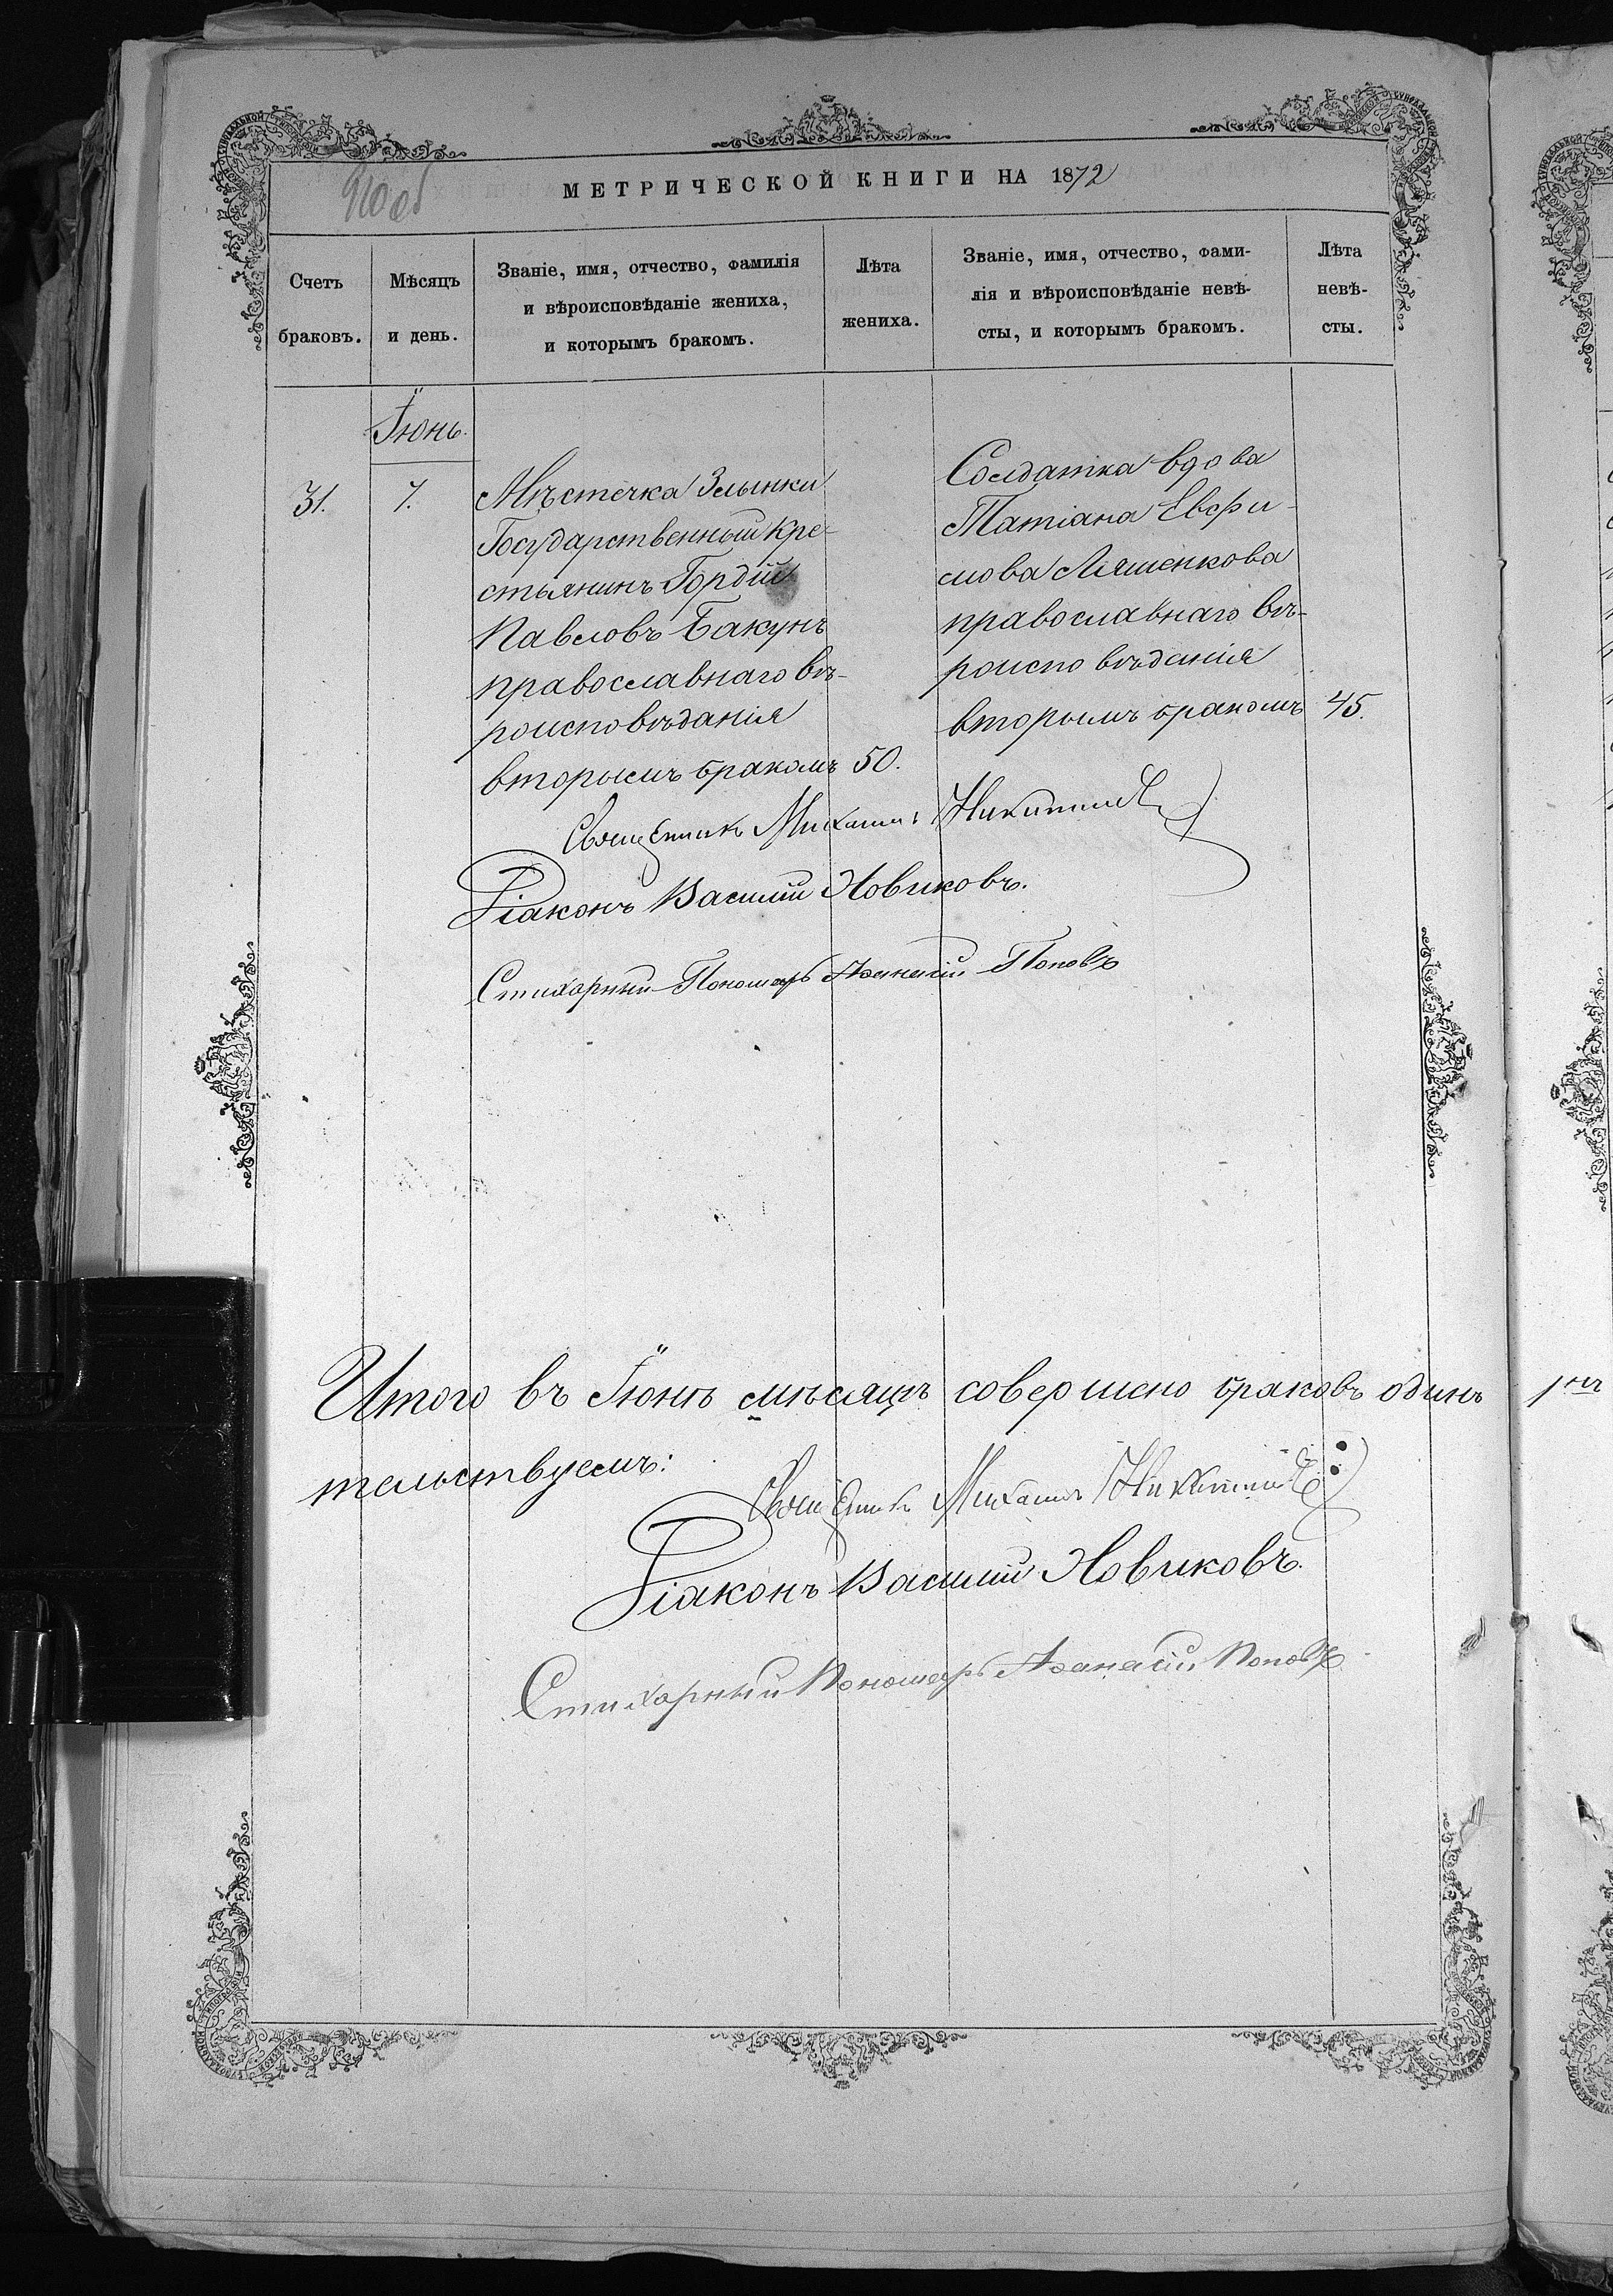 МЕТРИЧЕСКОЙ КНИГИ НА 1872
Счетъ браковъ.
Мѣсяцъ и день.
Званіе, имя, отчество, фамилія
и вѣроисповѣданіе жениха,
и которымъ бракомъ.
Лѣта жениха.
Званіе, имя, отчество, фами-
лія и вѣроисповѣданіе невѣ-
сты, и которымъ бракомъ.
Лѣта невѣ-
сты.
Іюнь.
31.
7.
Мѣстечка Злынки
Государственный кре-
стьянинъ Гордій
Павловъ Бакунъ
православнаго вѣ-
роисповѣданія
вторымъ бракомъ 50.
Солдатка вдова
Татіана Евфи-
мова Ляшенкова
православнаго вѣ-
роисповѣданія
вторымъ бракомъ 45.
Священникъ Михаилъ
Діаконъ Василій Новиковъ.
Стихарный Пономарь Афанасій Поповъ
Итого въ Іюнѣ мѣсяцѣ совершено браковъ одинъ
тельствуемъ:
Священникъ Михаилъ
Діаконъ Василій Новиковъ.
Стихарный Пономарь Афанасій Поповъ